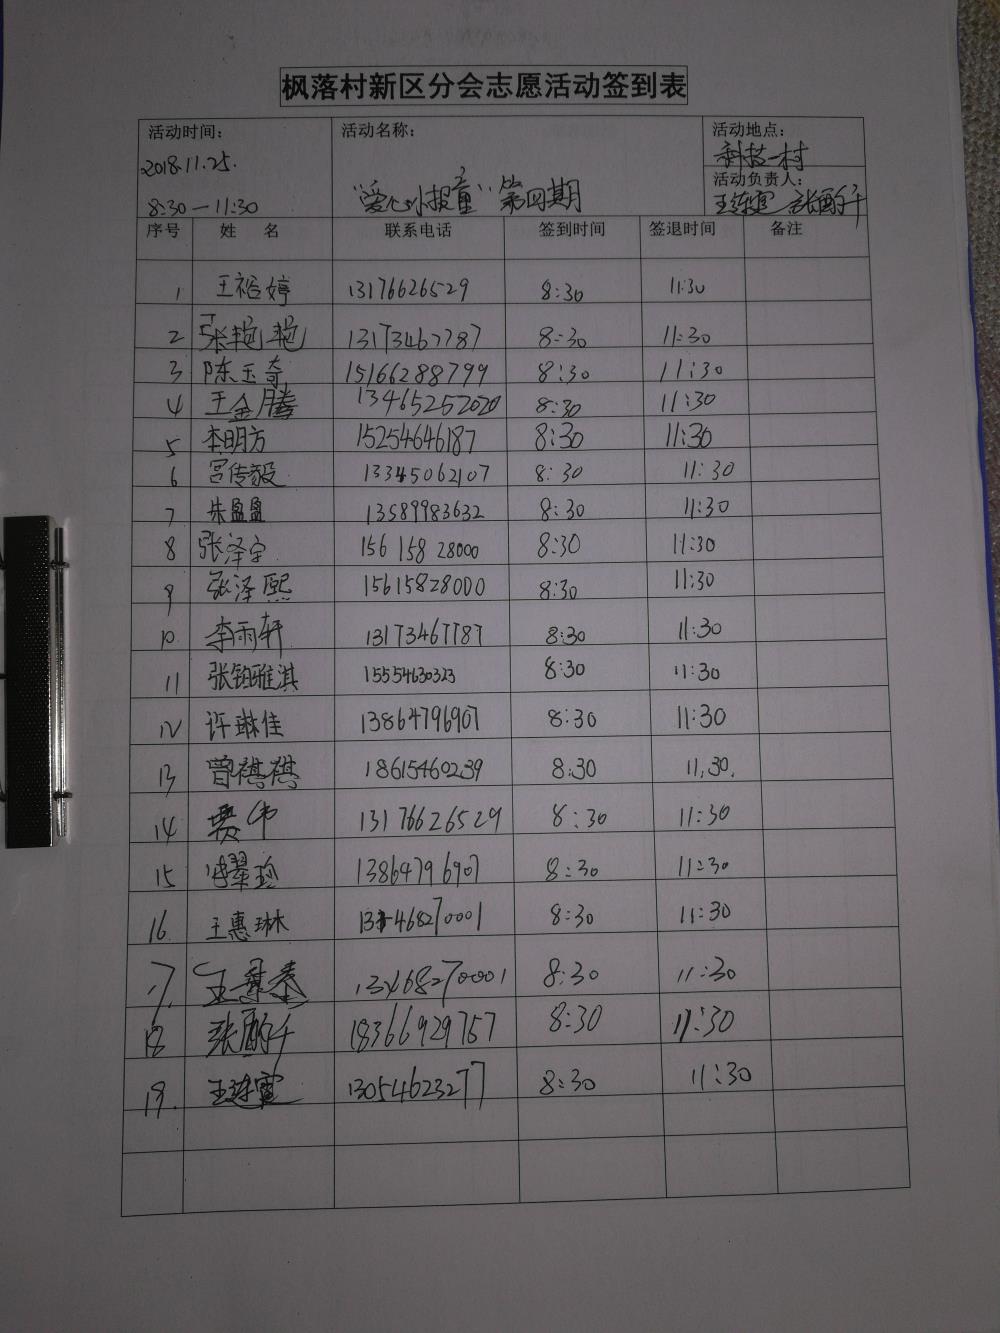 枫落村新区分会志愿活动签到表
活动时间： 活动名称： 活动地点：
2018.11.25. 科技一村
活动负责人：
8:30—11:30 "爱心小报童" 第四期 王连霞 张酬千
序号 姓 名 联系电话 签到时间 签退时间 备注
1 王裕婷 13176626529 8:30 11:30
2 张艳艳 13173467787 8:30 11:30
3 陈玉奇 15166288799 8:30 11:30
4 王金腾 13465252020 8:30 11:30
5 李明方 15254646187 8:30 11:30
6 宫传毅 13345062107 8:30 11:30
7 朱盈盈 13589983632 8:30 11:30
8 张泽宇 156 158 28000 8:30 11:30
9 张泽熙 15615828000 8:30 11:30
10. 李雨轩 13173467787 8:30 11:30
11 张铂雅淇 15554630323 8:30 11:30
12 许琳佳 13864796907 8:30 11:30
13 曾祺祺 18615460239 8:30 11.30.
14 13176626529 8:30 11:30
15 13864796907 8:30 11:30
16. 王惠琳 8:30 11:30
17. 8:30 11:30
18 张酬千 18366929757 8:30 11:30
19. 王连霞 13054623277 8:30 11:30